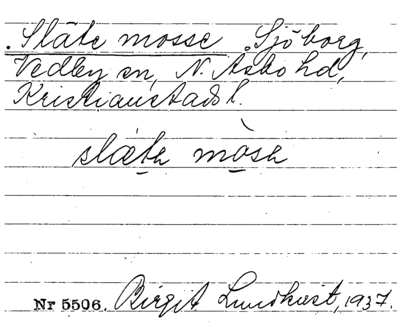 . Släte mosse Sjöborg,
Vedby sn, N. Åsbo hd,
Kristianstads l.
slætə mòsə
Nr 5506. Birgit Lundkvist, 1937.